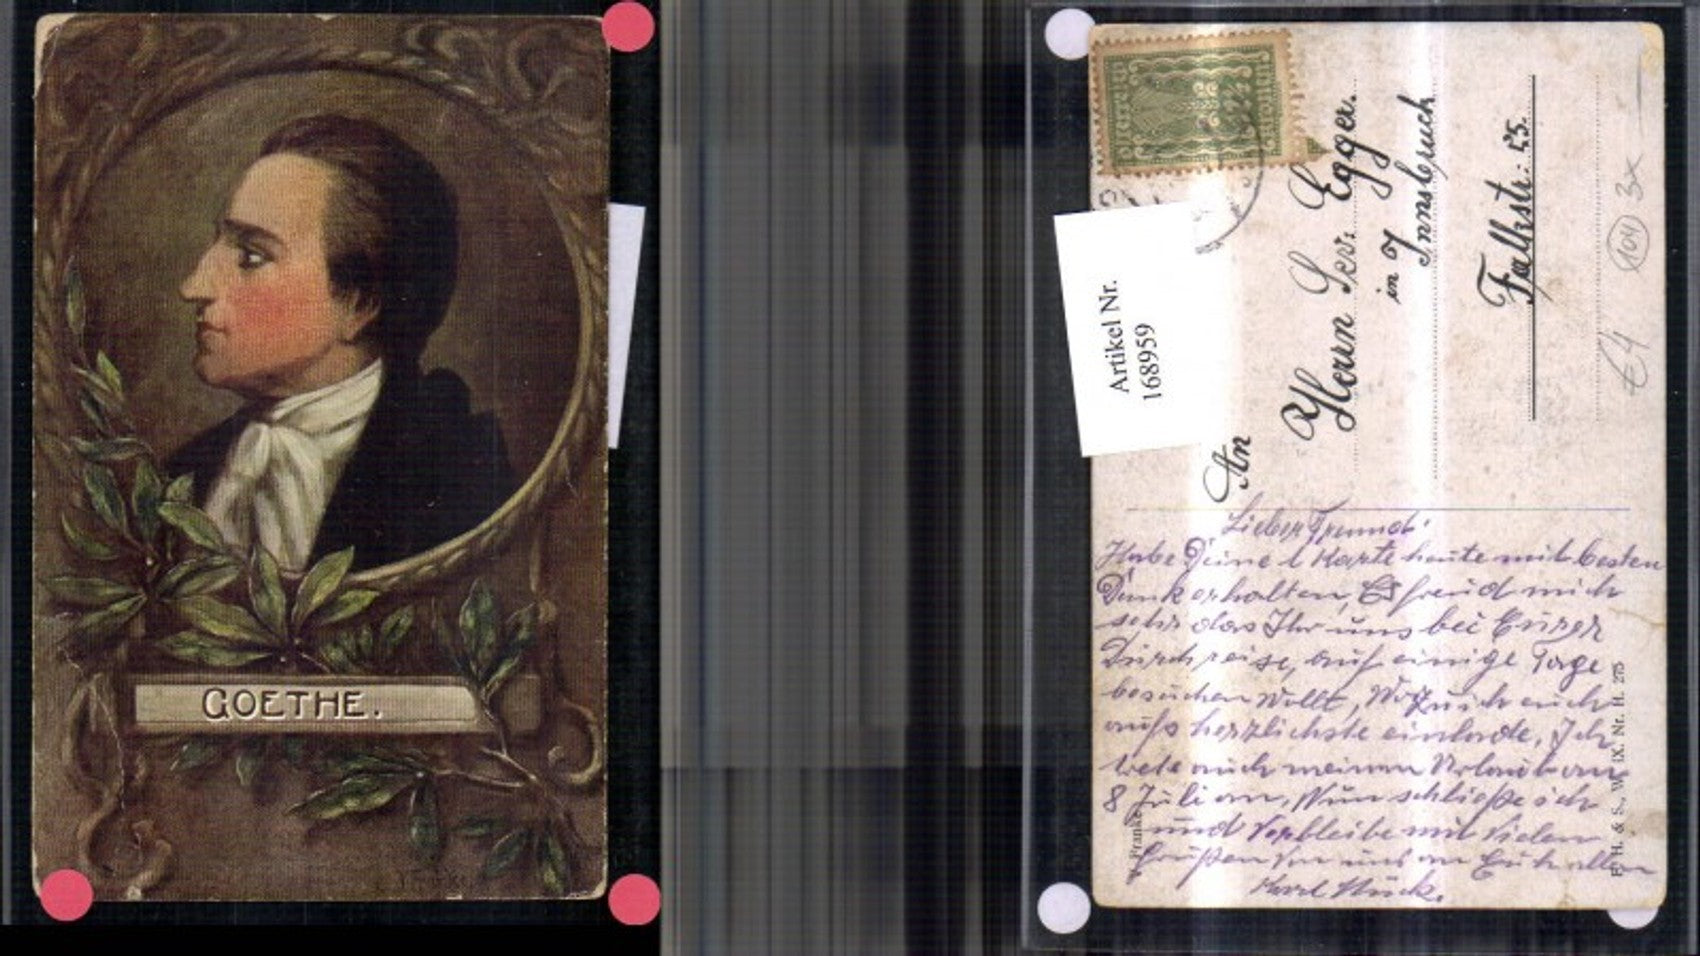 GOETHE.
Artikel Nr.
168959
An
Herrn Egger.
in Innsbruck
Falkstr: 25.
104 3x
€4
Lieber Freund!
Habe Deine l Karte heute mit besten
Dank erhalten, Es freud mich
sehr das Ihr uns bei Eurer
Durchreise, auf einige Tage
besuchen Wollt, Wozu ich euch
aufs herzlichste einlade, Ich
trete auch meinen Urlaub am
8 Juli an, Nun schließe ich
und Verbleibe mit Vielen
Grüßen von uns an Euch allen
Karl
F. H. & S., W. IX. Nr. H. 275